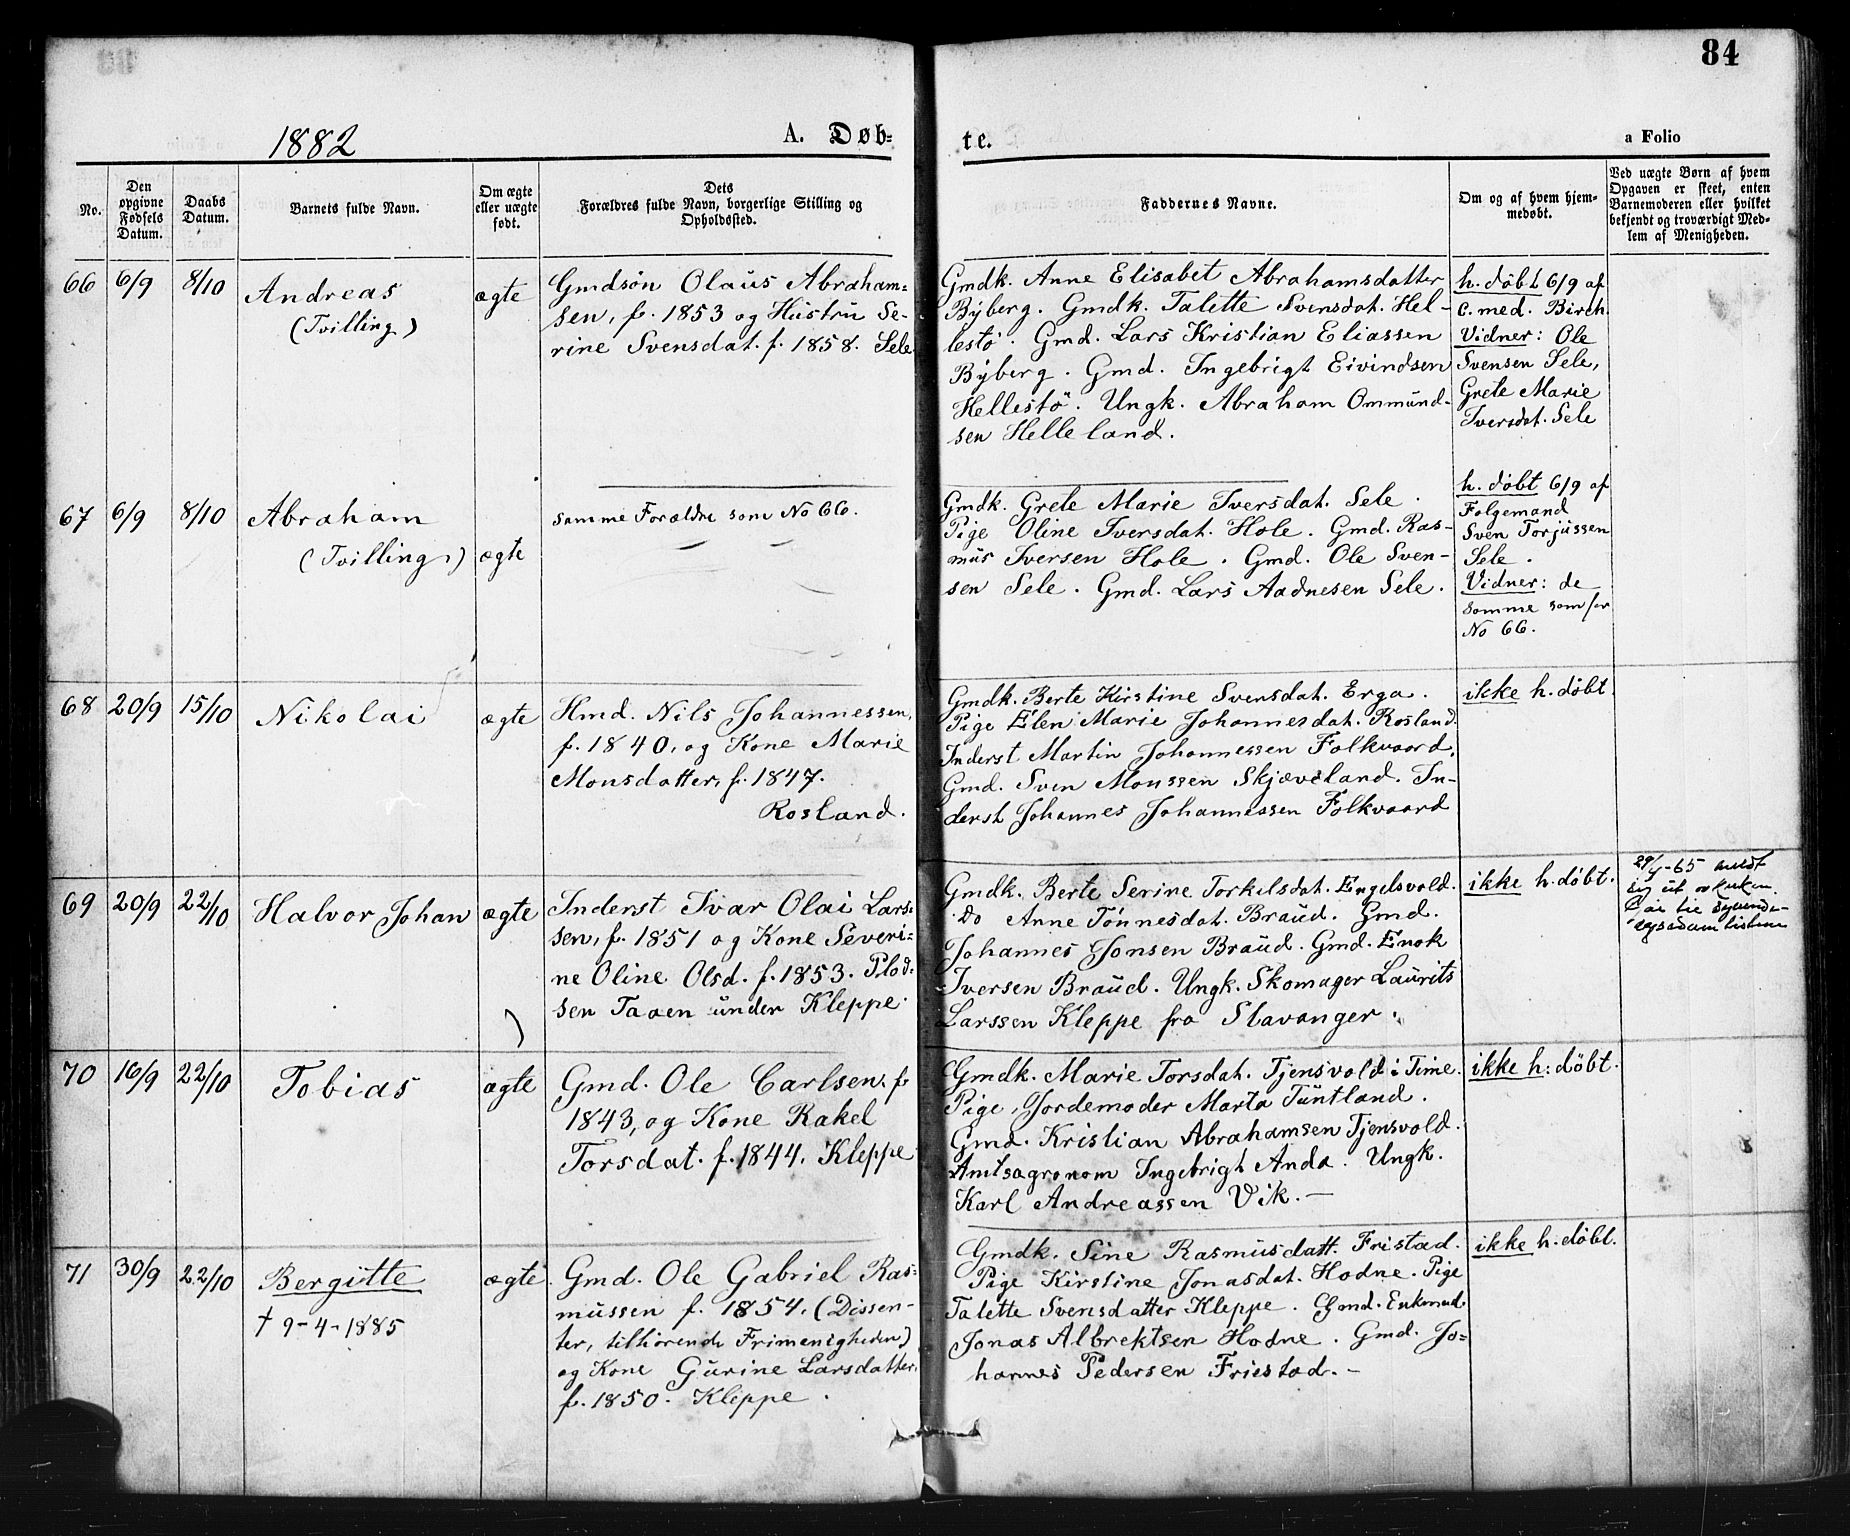 84
1882
A. Døb-
te.
a Folio
No.
Den
opgivne
Fødsels
Datum.
Daabs
Datum.
Barnets fulde Navn.
Om ægte
eller uægte
født.
Dets
Forældres fulde Navn, borgerlige Stilling og
Opholdssted.
Faddernes Navne.
Om og af hvem hjem-
medøbt.
Ved uægte Børn af hvem
Opgaven er skeet, enten
Barnemoderen eller hvilket
bekjendt og troværdigt Med-
lem af Menigheden.
66 6/9 8/10
Andreas
(Tvilling)
ægte
Gmdsøn Olaus Abraham=
sen, f. 1853 og Hustru Se-
rine Svensdat. f. 1858. Sele
Gmdk. Anne Elisabet Abrahamsdatter
Byberg. Gmdk. Talette Svensdat. Hel-
lestø. Gmd. Lars Kristian Eliassen
Byberg. Gmd. Ingebrigt Eivindsen
Hellestø. Ungk. Abraham Ommund-
sen Helleland.
h. døbt 6/9 af
C. med. Birch.
Vidner: Ole
Svensen Sele,
Grete Marie
Iversdat. Sele
67 6/9 8/10
Abraham
(Tvilling.)
ægte
Samme Forældre som No 66.
Gmdk. Grete Marie Iversdat. Sele.
Pige Oline Iversdat. Hole. Gmd. Ras-
mus Iversen Hole. Gmd. Ole Sven-
sen Sele. Gmd. Lars Aadnesen Sele.
h. døbt 6/9 af
Følgemand
Sven Torjussen
Sele.
Vidner: de
samme som for
No 66.
68 20/9 15/10
Nikolai
ægte
Hmd. Nils Johannessen,
f. 1840, og Kone Marie
Monsdatter, f. 1847.
Rosland.
Gmdk. Berte Kirstine Svensdat. Erga.
Pige Elen Marie Johannesdat. Rosland.
Inderst Martin Johannessen Folkvaord.
Gmd. Sven Monssen Skjæveland. In-
derst Johannes Johannessen Folkvaord
ikke h. døbt.
69 20/9 22/10
Halvor Johan
ægte
Inderst Ivar Olai Lars-
sen, f. 1851 og Kone Severi=
ne Oline Olsd. f. 1853. Plod=
sen Taaen under Kleppe.
Gmdk. Berte Serine Torkelsdat. Engelsvold.
Do Anne Tønnesdat. Braud. Gmd.
Johannes Jonsen Braud. Gmd. Enok
Iversen Braud. Ungk. Skomager Laurits
Larssen Kleppe fra Stavanger.
ikke h. døbt.
-65 meldt
sig ut av kirken
70 16/9 22/10
Tobias
ægte
Gmd. Ole Carlsen, f.
1843, og Kone Rakel
Torsdat. f. 1844. Kleppe
Gmdk. Marie Torsdat. Tjensvold i Time.
Pige, Jordemoder Marta Tuntland.
Gmd. Kristian Abrahamsen Tjensvold.
Amtsagronom Ingebrigt Anda. Ungk.
Karl Andreassen Vik. —
ikke h: døbt.
71 30/9 22/10
Bergitte
† 9-4-1885
ægte
Gmd. Ole Gabriel Ras=
mussen f. 1854. (Dissen-
ter, tilhørende Frimenigheden)
og Kone Gurine Larsdatter,
f. 1850. Kleppe.
Gmdk. Sine Rasmusdatt. Fristad.
Pige Kirstine Jonasdat. Hodne. Pige
Talette Svensdatter Kleppe. Gmd. Enkemd.
Jonas Albrektsen Hodne. Gmd. Jo=
hannes Pedersen Friestad. —
ikke h. døbt.